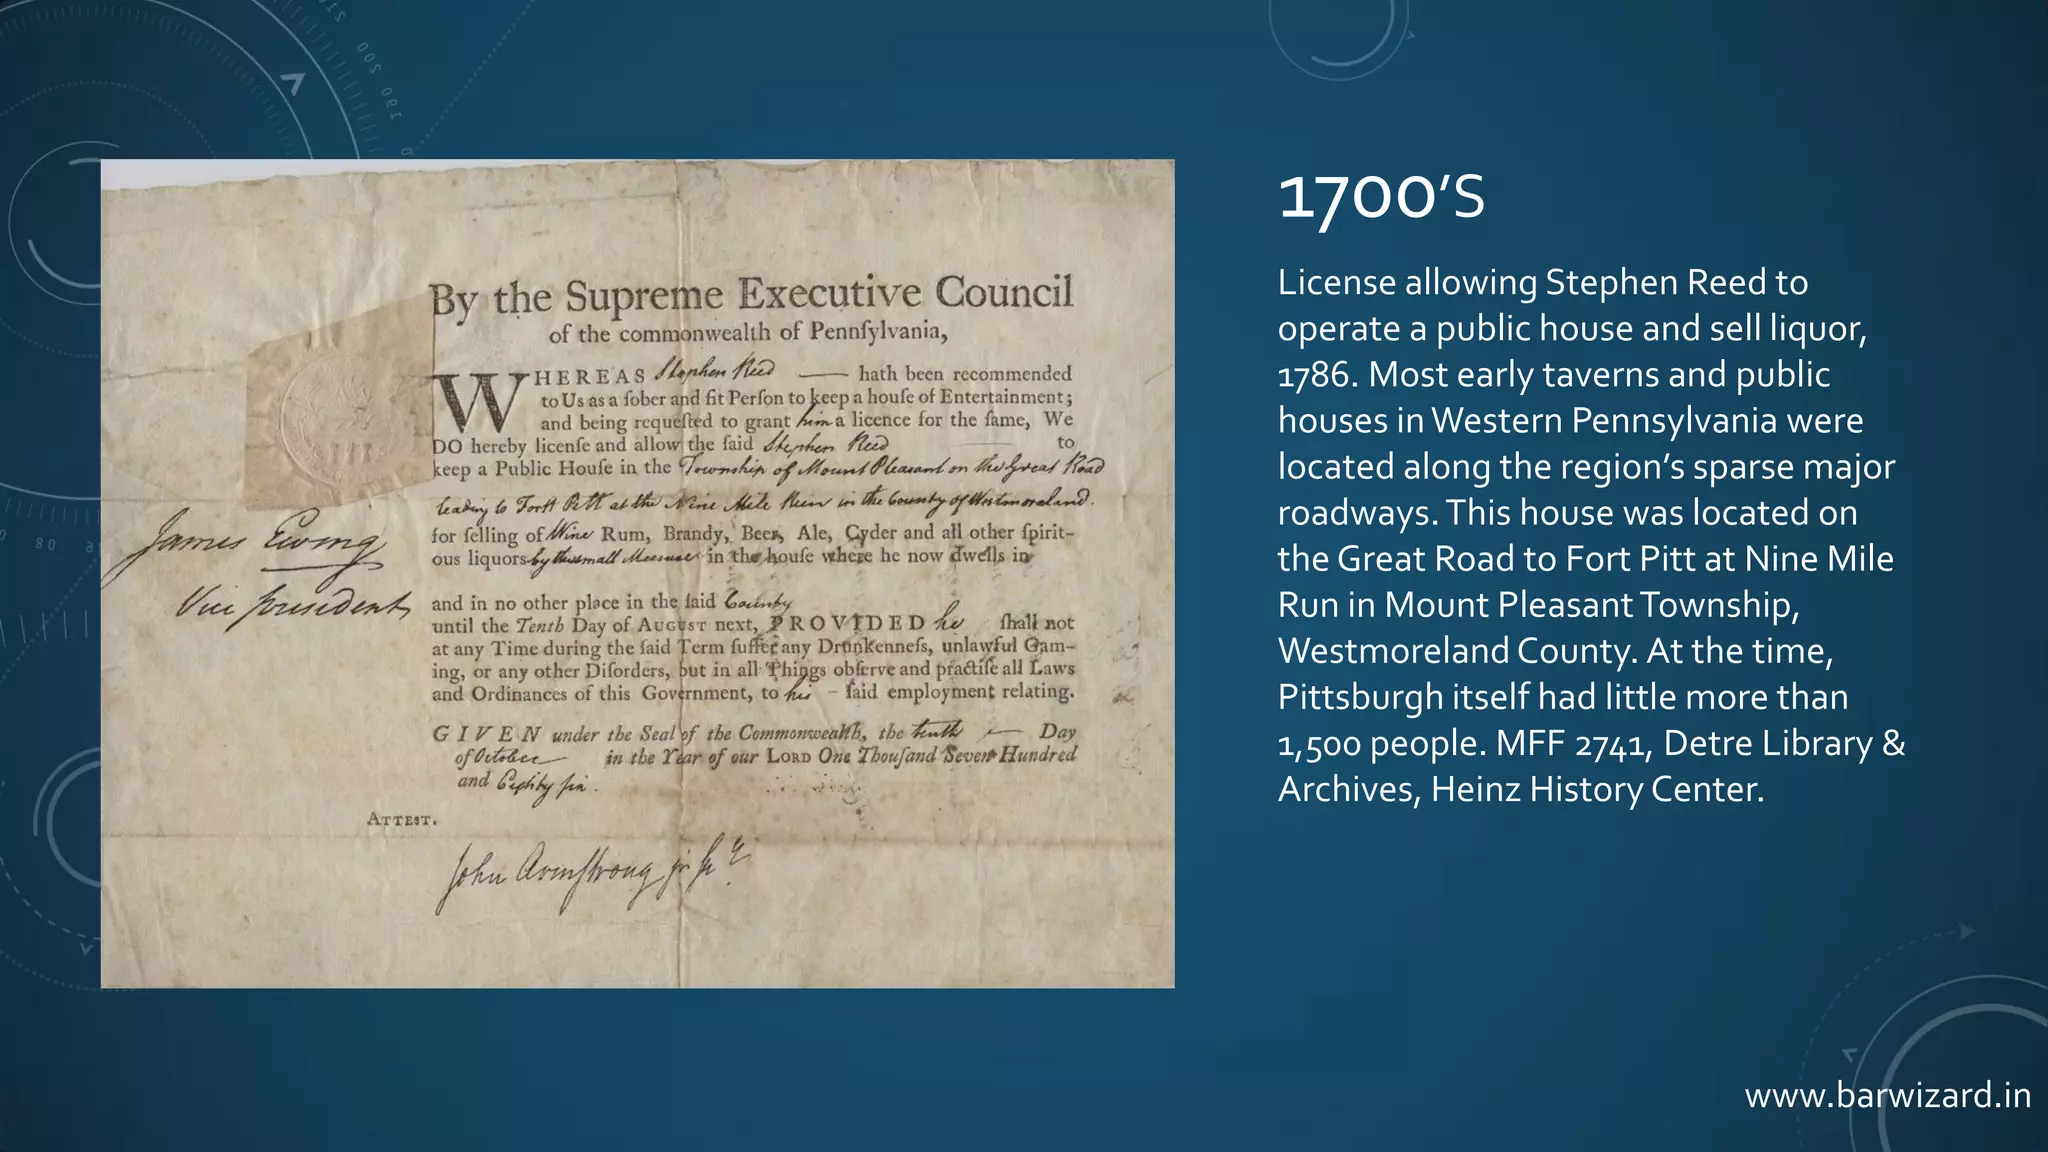 By the Supreme Executive Council
of the commonwealth of Pennſylvania,
WHEREAS Stephen Reed hath been recommended
to Us as a ſober and fit Perſon to keep a houſe of Entertainment;
and being requeſted to grant him a licence for the ſame, We
DO hereby licenſe and allow the ſaid Stephen Reed to
keep a Public Houſe in the Township of Mount Pleasant on the Great Road
leading to Fort Pitt at the Nine Mile Run in the County of Westmoreland.
for ſelling of Wine Rum, Brandy, Beer, Ale, Cyder and all other ſpirit-
ous liquors by the small Measure in the houſe where he now dwells in
and in no other place in the ſaid County
until the Tenth Day of AUGUST next, PROVIDED he ſhall not
at any Time during the ſaid Term ſuffer any Drunkenneſs, unlawful Gam-
ing, or any other Diſorders, but in all Things obſerve and practiſe all Laws
and Ordinances of this Government, to his ſaid employment relating.
GIVEN under the Seal of the Commonwealth, the tenth Day
of October in the Year of our LORD One Thouſand Seven Hundred
and Eighty six.
James Ewing
Vice president
ATTEST.
John Armſtrong jr
1700'S
License allowing Stephen Reed to
operate a public house and sell liquor,
1786. Most early taverns and public
houses in Western Pennsylvania were
located along the region's sparse major
roadways. This house was located on
the Great Road to Fort Pitt at Nine Mile
Run in Mount Pleasant Township,
Westmoreland County. At the time,
Pittsburgh itself had little more than
1,500 people. MFF 2741, Detre Library &
Archives, Heinz History Center.
www.barwizard.in